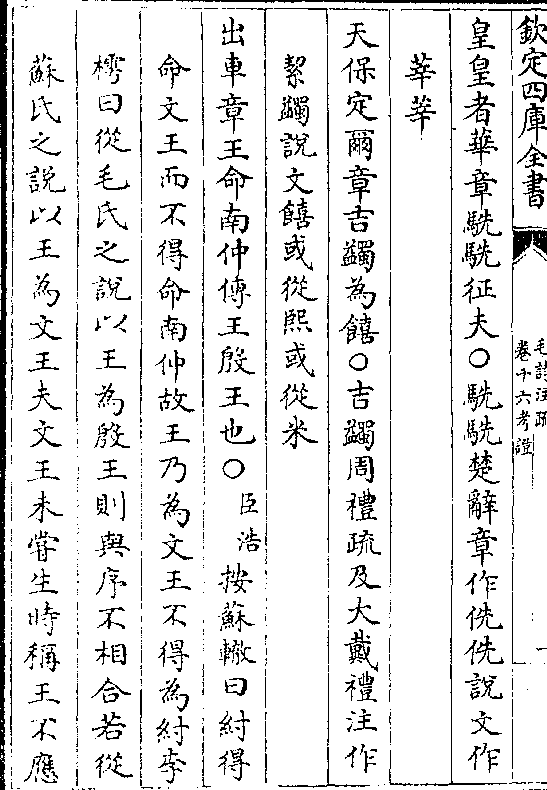 欽定四庫全書
毛詩注疏
卷十六考證
一
皇皇者華章駪駪征夫○駪駪楚辭章作侁侁說文作
莘莘
天保定爾章吉蠲為饎○吉蠲周禮疏及大戴禮注作
絜蠲說文饎或從熙或從米
出車章王命南仲傳王殷王也○臣浩按蘇轍曰紂得
命文王而不得命南仲故王乃為文王不得為紂李
樗曰從毛氏之說以王為殷王則與序不相合若從
蘇氏之說以王為文王夫文王未嘗生時稱王不應